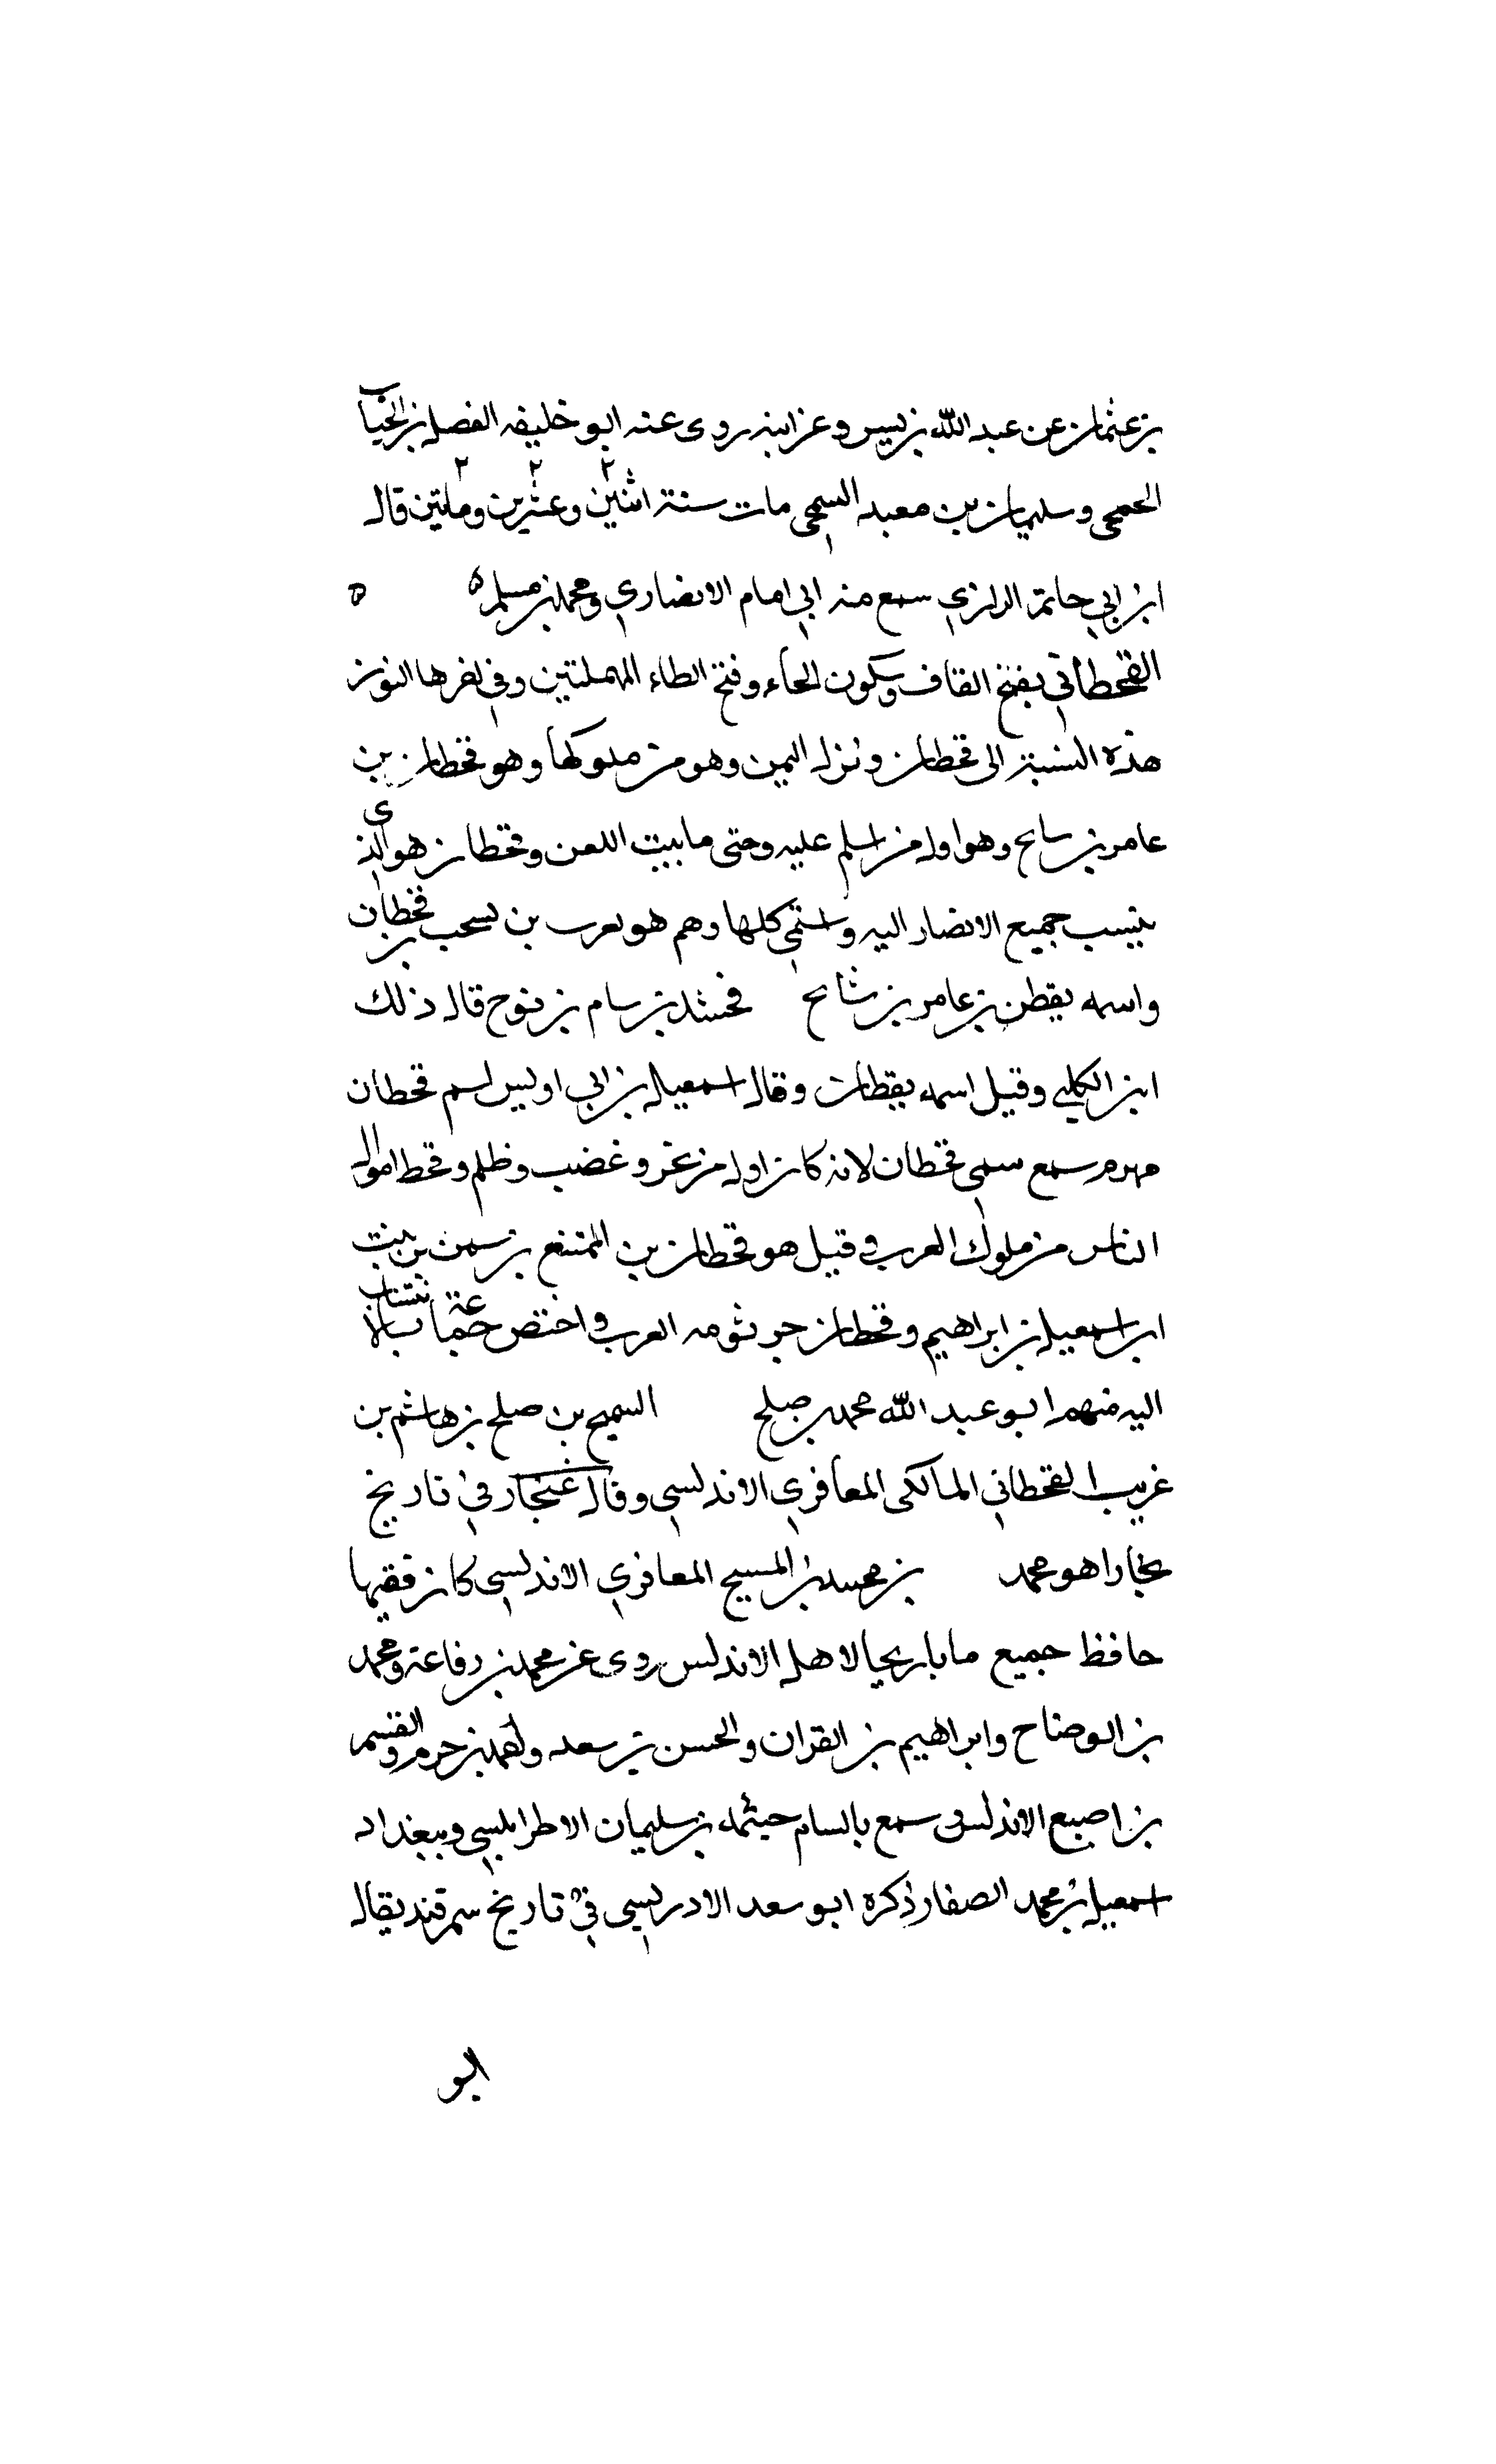 بن عثمان عن عبد الله بن يسر وعن ابيه روى عنه ابو خليفه الفضل بن الحباب
الجمحي وسليمان بن معبد السنجي مات سنة اثنين وعشرين ومايتين قال
ابن ابي حاتم الرازي سمع منه ابي امام الانصاري ومحمد بن مسلم ه ه
القحطاني بفتح القاف وسكون الحاء وفتح الطاء المهملتين وفي اخرها النون
هذه النسبة الى قحطان ونزل اليمن وهو من ملوكها وهو قحطان بن
عامر بن سالح وهو اول من اسلم عليه وحتى مابيت اللعن وقحطان هو الذي
ينسب جميع الانصار اليه و كلها وهم هو يعرب بن يسحب بن قحطان
واسمه يقطن بن عامر بن شالح فخشد بن سام بن نوح قال ذلك
ابن الكلبي وقيل اسمه يقطان وقال اسمعيل بن ابي اويس اسم قحطان
مهرم سمع سمى قحطان لانه كان اول من تجر وغضب وظلم وقحط اموال
الناس من ملوك العرب و قيل هو قحطان بن الممتنع بن سمن بن بنت
ابن اسمعيل بن ابراهيم وقحطان جرثومه العرب و اختص جماعة بالانتساب
اليه منهم ابو عبد الله محمد بن صلح السميح بن صلح بن هاشم بن
غريب القحطاني المالكى المعافري الاندلسي وقال غنجار في تاريخ
بخارا هو محمد بن محمد بن المسيح المعافري الاندلسي كان فقيها
حافظ جميع لاهل الاندلس روى عن محمد بن رفاعة ومحمد
بن الوضاح وابراهيم بن القزان والحسن بن سعد واحمد بن حزم والقسم
بن اصبع الاندلسي سمع بالسام حيثمه بن سليمان الاطرابلسي وببغداد
اسمعيل بن محمد الصفار ذكره ابو سعد الادريسي في تاريخ سمرقند يقال
ابو